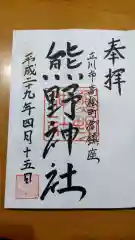 奉拝
立川市高松町鎮座
熊野神社
平成二十九年四月十五日